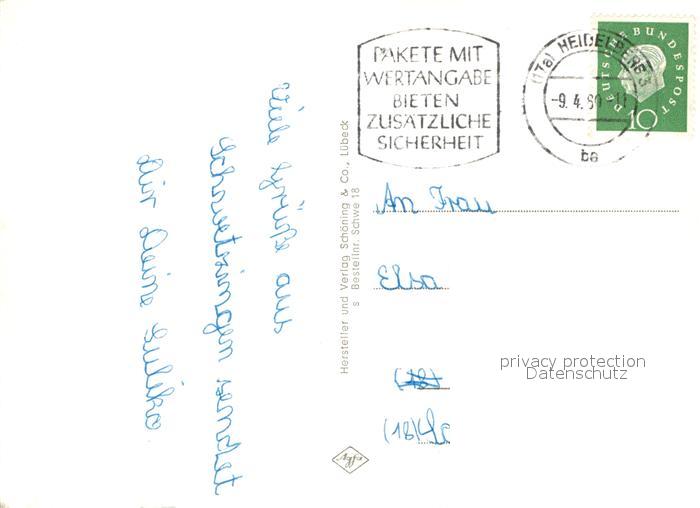 PAKETE MIT
WERTANGABE
BIETEN
ZUSÄTZLICHE
SICHERHEIT
(17a) HEIDELBERG
-9.4.60-11
ba
DEUTSCHE BUNDESPOST
10
Viele Grüße aus
Schwetzingen sendet
dir Deine
Hersteller und Verlag Schöning & Co., Lübeck
s Bestellnr. Schwe 18
An Frau
Elsa
(18)
privacy protection
Datenschutz
Agfa